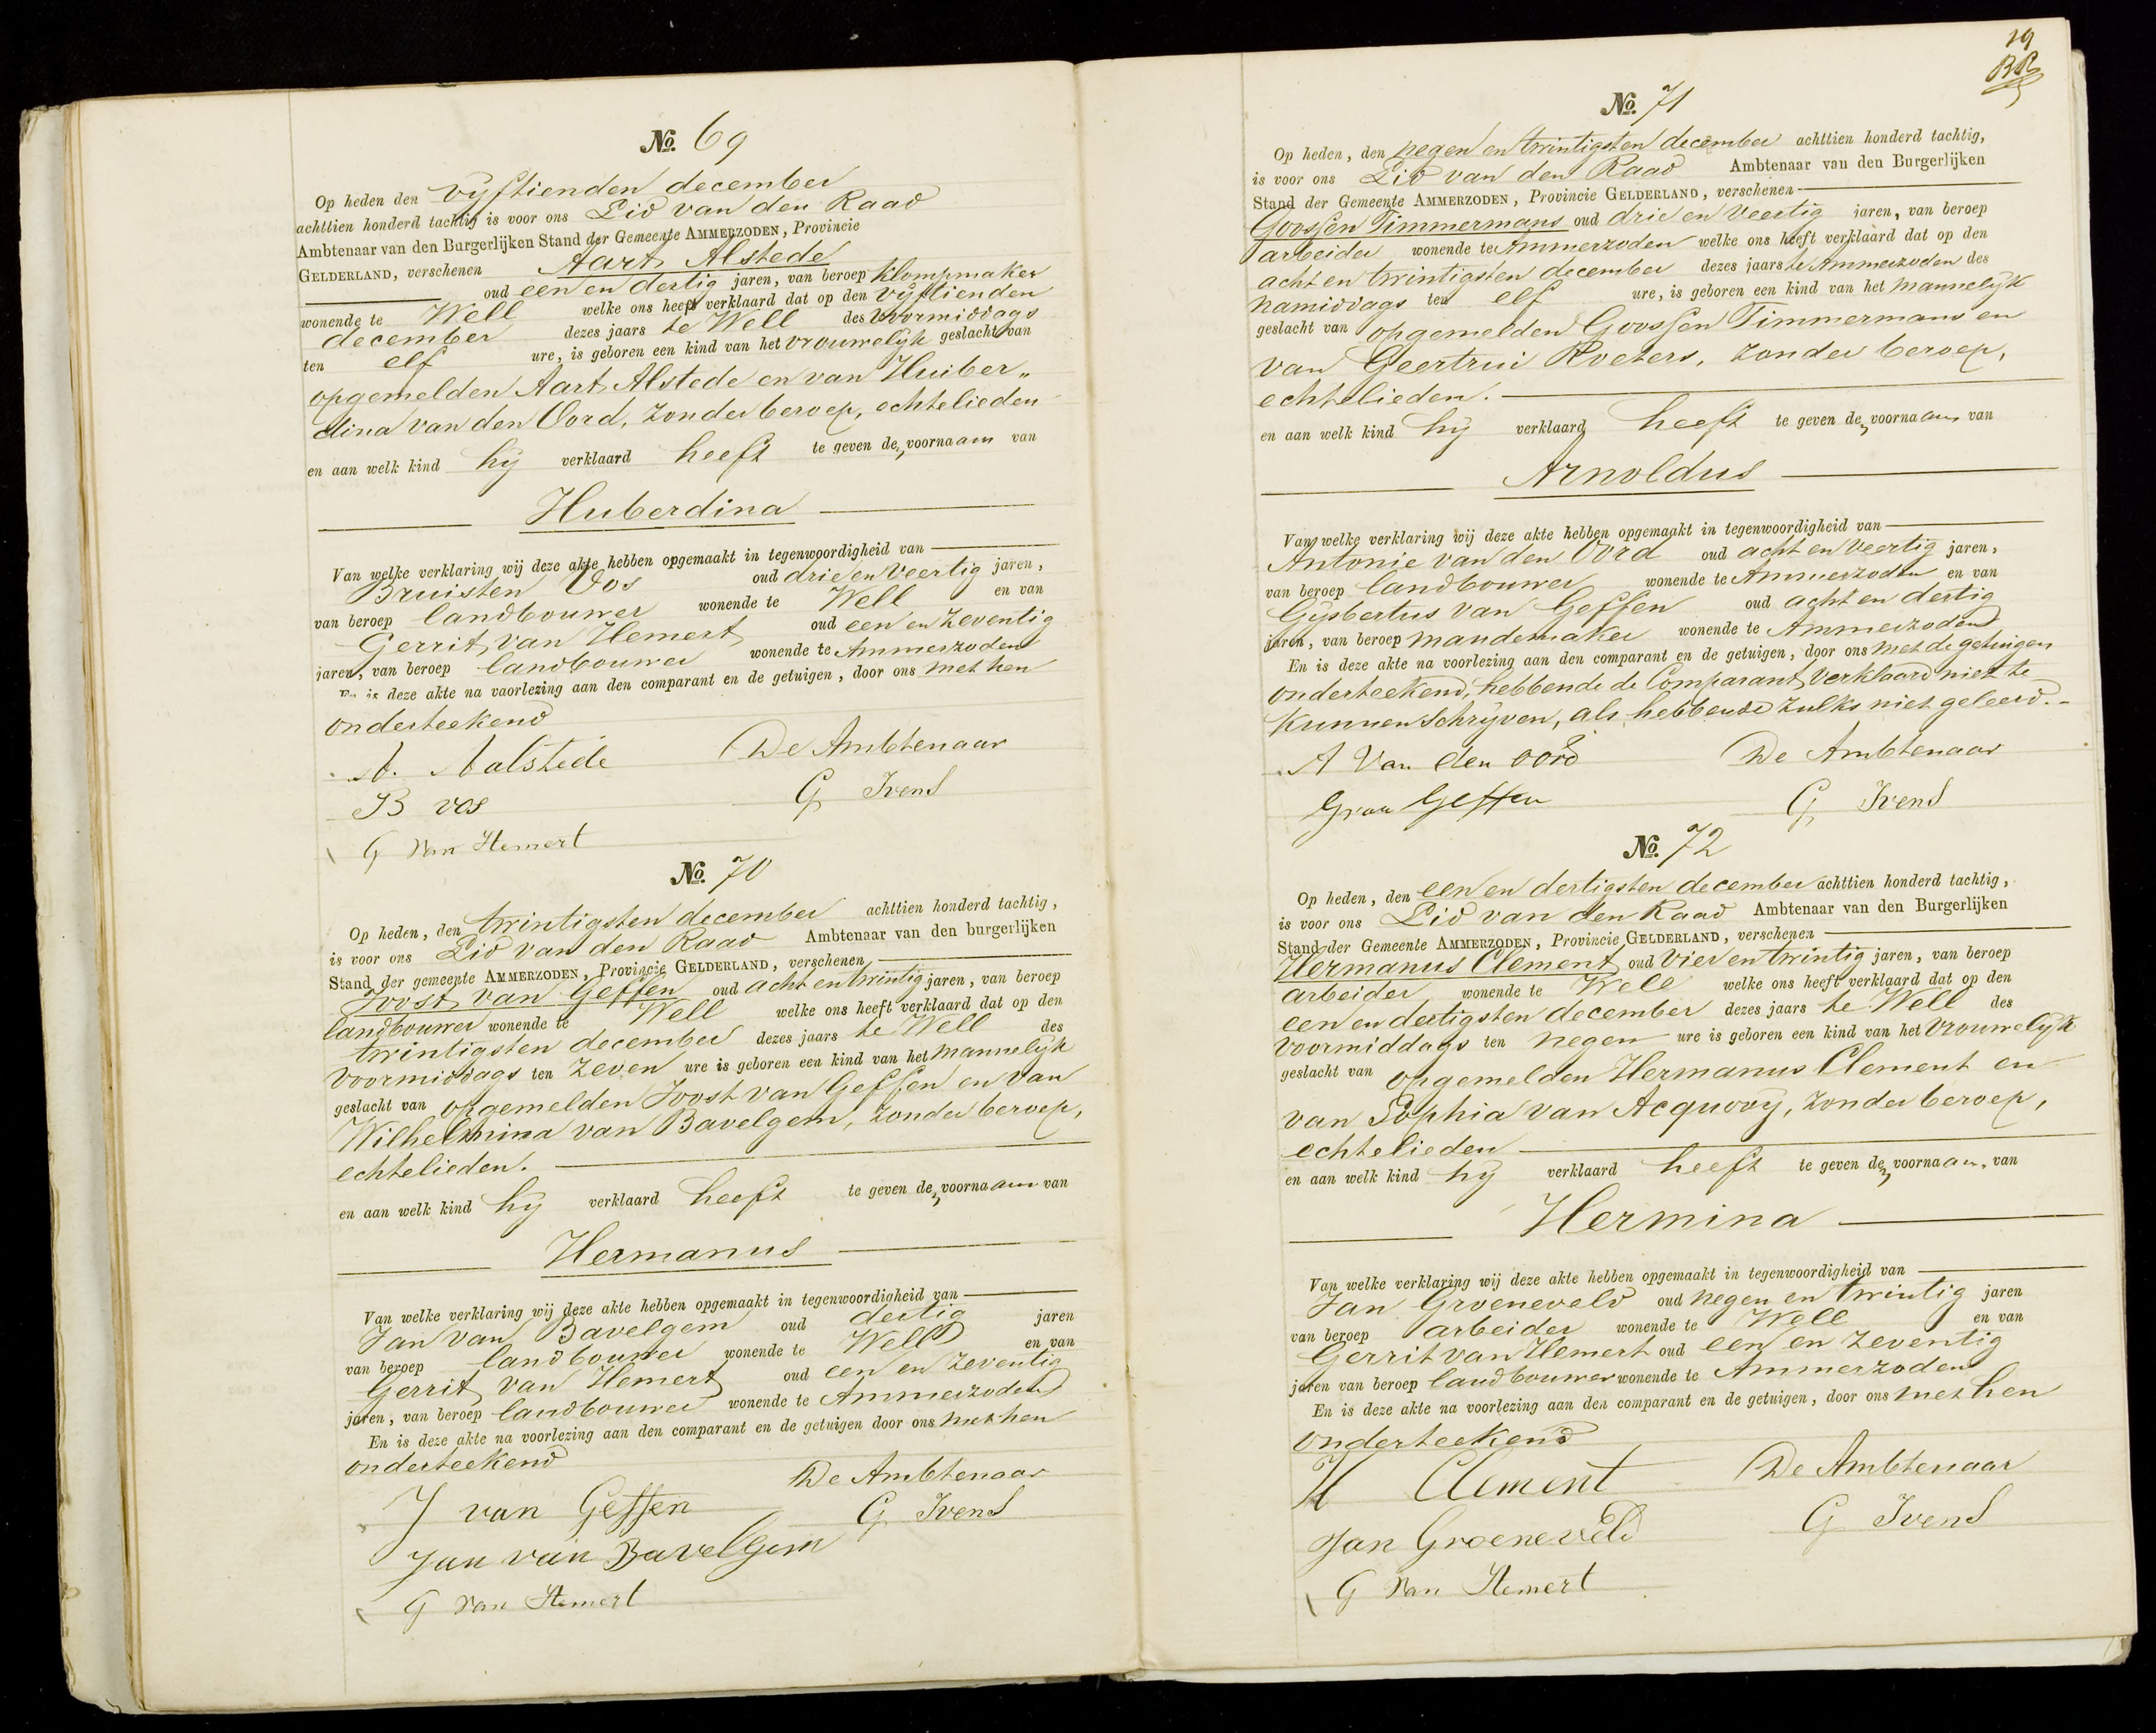 No. 69
Op heden den vyftienden december
achttien honderd tachtig is voor ons Lid van den Raad
Ambtenaar van den Burgerlijken Stand der Gemeente AMMERZODEN, Provincie
GELDERLAND, verschenen Aart Alstede
oud een en dertig jaren, van beroep klompmaker
wonende te Well welke ons heeft verklaard dat op den vyftienden
december dezes jaars te Well des voormiddags
ten elf ure, is geboren een kind van het vrouwelyk geslacht van
opgemelden Aart Alstede en van Huiber„
dina van den Oord, zonder beroep, echtelieden
en aan welk kind hy verklaard heeft te geven de voornaam van
Huberdina
Van welke verklaring wij deze akte hebben opgemaakt in tegenwoordigheid van
Bruisten Vos oud drie en veertig jaren,
van beroep landbouwer wonende te Well en van
Gerrit van Hemert oud een en zeventig
jaren, van beroep landbouwer wonende te Ammerzoden
is deze akte na vaorlezing aan den comparant en de getuigen, door ons met hen
onderteekend
A. Aalstede De Ambtenaar
B vos G Ivens
G van Hemert
No. 70
Op heden, den twintigsten december achttien honderd tachtig,
is voor ons Lid van den Raad Ambtenaar van den burgerlijken
Stand der gemeente AMMERZODEN, Provincie GELDERLAND, verschenen
Joost van Geffen oud acht en twintig jaren, van beroep
landbouwer wonende te Well welke ons heeft verklaard dat op den
twintigsten december dezes jaars te Well des
voormiddags ten zeven ure is geboren een kind van het mannelyk
geslacht van opgemelden Joost van Geffen en van
Wilhelmina van Bavelgem, zonder beroep,
echtelieden.
en aan welk kind hy verklaard heeft te geven de voornaam van
Hermanus
Van welke verklaring wij deze akte hebben opgemaakt in tegenwoordigheid van
Jan van Bavelgem oud dertig jaren
van beroep landbouwer wonende te Well en van
Gerrit van Hemert oud een en zeventig
jaren, van beroep landbouwer wonende te Ammerzoden
En is deze akte na voorlezing aan den comparant en de getuigen door ons met hen
onderteekend
J van Geffen De Ambtenaar
Jan van Bavelgem G Ivens
G van Hemert
19
BR
No. 71
Op heden, den negen en twintigsten december achttien honderd tachtig,
is voor ons Lid van den Raad Ambtenaar van den Burgerlijken
Stand der Gemeente AMMERZODEN, Provincie GELDERLAND, verschenen
Goossen Timmermans oud drie en veertig jaren, van beroep
arbeider wonende te Ammerzoden welke ons heeft verklaard dat op den
acht en twintigsten december dezes jaars te Ammerzoden des
namiddags ten elf ure, is geboren een kind van het mannelyk
geslacht van opgemelden Goossen Timmermans en
van Geertrui Roeters, zonder beroep,
echtelieden.
en aan welk kind hy verklaard heeft te geven de voornaam van
Arnoldus
Van welke verklaring wij deze akte hebben opgemaakt in tegenwoordigheid van
Antonie van den Oord oud acht en veertig jaren,
van beroep landbouwer wonende te Ammerzoden en van
Gysbertus van Geffen oud acht en dertig
jaren, van beroep mandemaker wonende te Ammerzoden
En is deze akte na voorlezing aan den comparant en de getuigen, door ons met de getuigen
onderteekend, hebbende de Comparant verklaard niet te
kunnen schryven, als hebbende zulks niet geleerd.
A van den oord De Ambtenaar
G van Geffen G Ivens
No. 72
Op heden, den een en dertigsten december achttien honderd tachtig,
is voor ons Lid van den Raad Ambtenaar van den Burgerlijken
Stand der Gemeente AMMERZODEN, Provincie GELDERLAND, verschenen
Hermanus Clement oud vier en twintig jaren, van beroep
arbeider wonende te Well welke ons heeft verklaard dat op den
een en dertigsten december dezes jaars te Well des
voormiddags ten negen ure is geboren een kind van het vrouwelyk
geslacht van opgemelden Hermanus Clement en
van Sophia van Acquooy, zonder beroep,
echtelieden
en aan welk kind hy verklaard heeft te geven de voornaam van
Hermina
Van welke verklaring wij deze akte hebben opgemaakt in tegenwoordigheid van
Jan Groeneveld oud negen en twintig jaren
van beroep arbeider wonende te Well en van
Gerrit van Hemert oud een en zeventig
jaren van beroep landbouwer wonende te Ammerzoden
En is deze akte na voorlezing aan den comparant en de getuigen, door ons met hen
onderteekend
H Clement De Ambtenaar
Jan Groeneveld G Ivens
G van Hemert